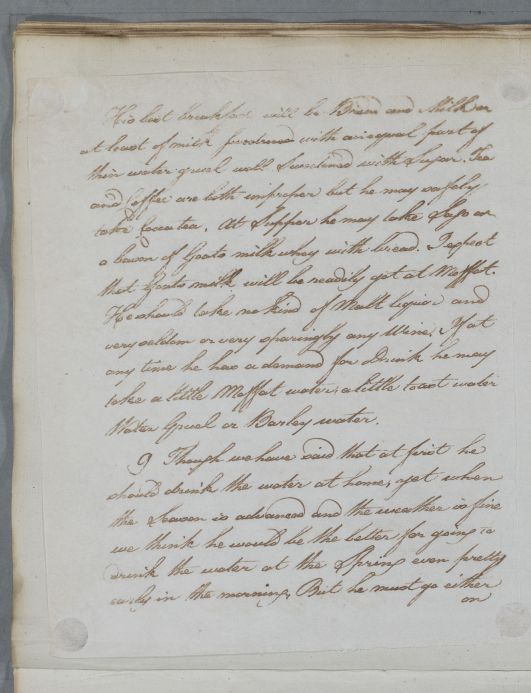 His best breakfast will be Bread and Milk or
at least of milk with an equal part of
thin water gruel well Sweetened with Sugar. Tea
and Coffee are both improper but he may safely
take Cocoa tea. At Supper he may take Sago or
a bason of Goats milk whey with bread. I expect
that Goats milk will be readily got at Moffat.
He should take no kind of Malt liquor and
very seldom or very sparingly any Wine; If at
any time he has a demand for drink he may
take a little Moffat water, a little toast water
Water Gruel or Barley water.
9 Though we have said that at first he
should drink the water at home, yet when
the Season is advanced and the weather is fine
we think he would be the better for going to
drink the water at the Spring even pretty
early in the morning, But he must go either
on